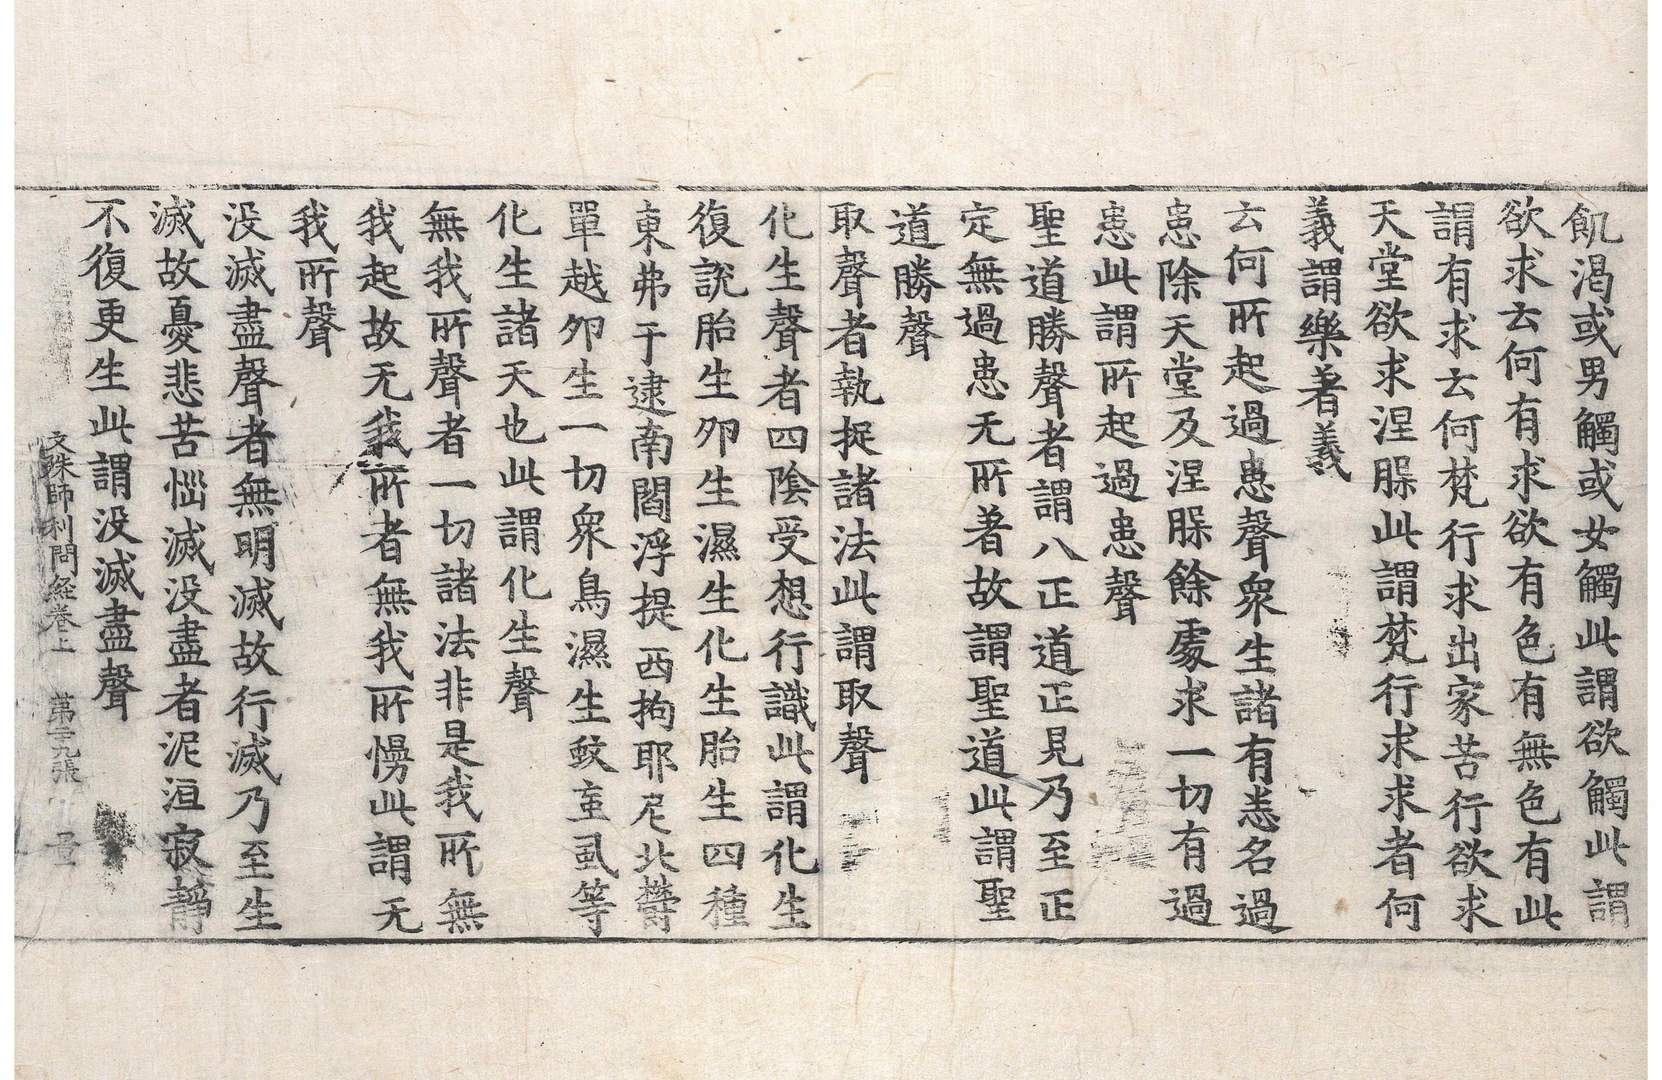 飢渴或男觸或女觸此謂欲觸此謂
欲求云何有求欲有色有無色有此
謂有求云何梵行求出家苦行欲求
天堂欲求涅脲此謂梵行求求者何
義謂樂著義
云何所起過患聲衆生諸有恙名過
患除天堂及涅脲餘處求一切有過
患此謂所起過患聲
聖道勝聲者謂八正道正見乃至正
定無過患无所著故謂聖道此謂聖
道勝聲
取聲者執捉諸法此謂取聲
化生聲者四陰受想行識此謂化生
復說胎生卵生濕生化生胎生四種
東弗于逮南閻浮提西拘耶尼北欝
單越卵生一切衆鳥濕生蚊䖟虱等
化生諸天也此謂化生聲
無我所聲者一切諸法非是我所無
我起故无我所者無我所慢此謂无
我所聲
没滅盡聲者無明滅故行滅乃至生
滅故憂悲苦惱滅没盡者泥洹寂靜
不復更生此謂没滅盡聲
文殊師利問経卷上 第二九張 量